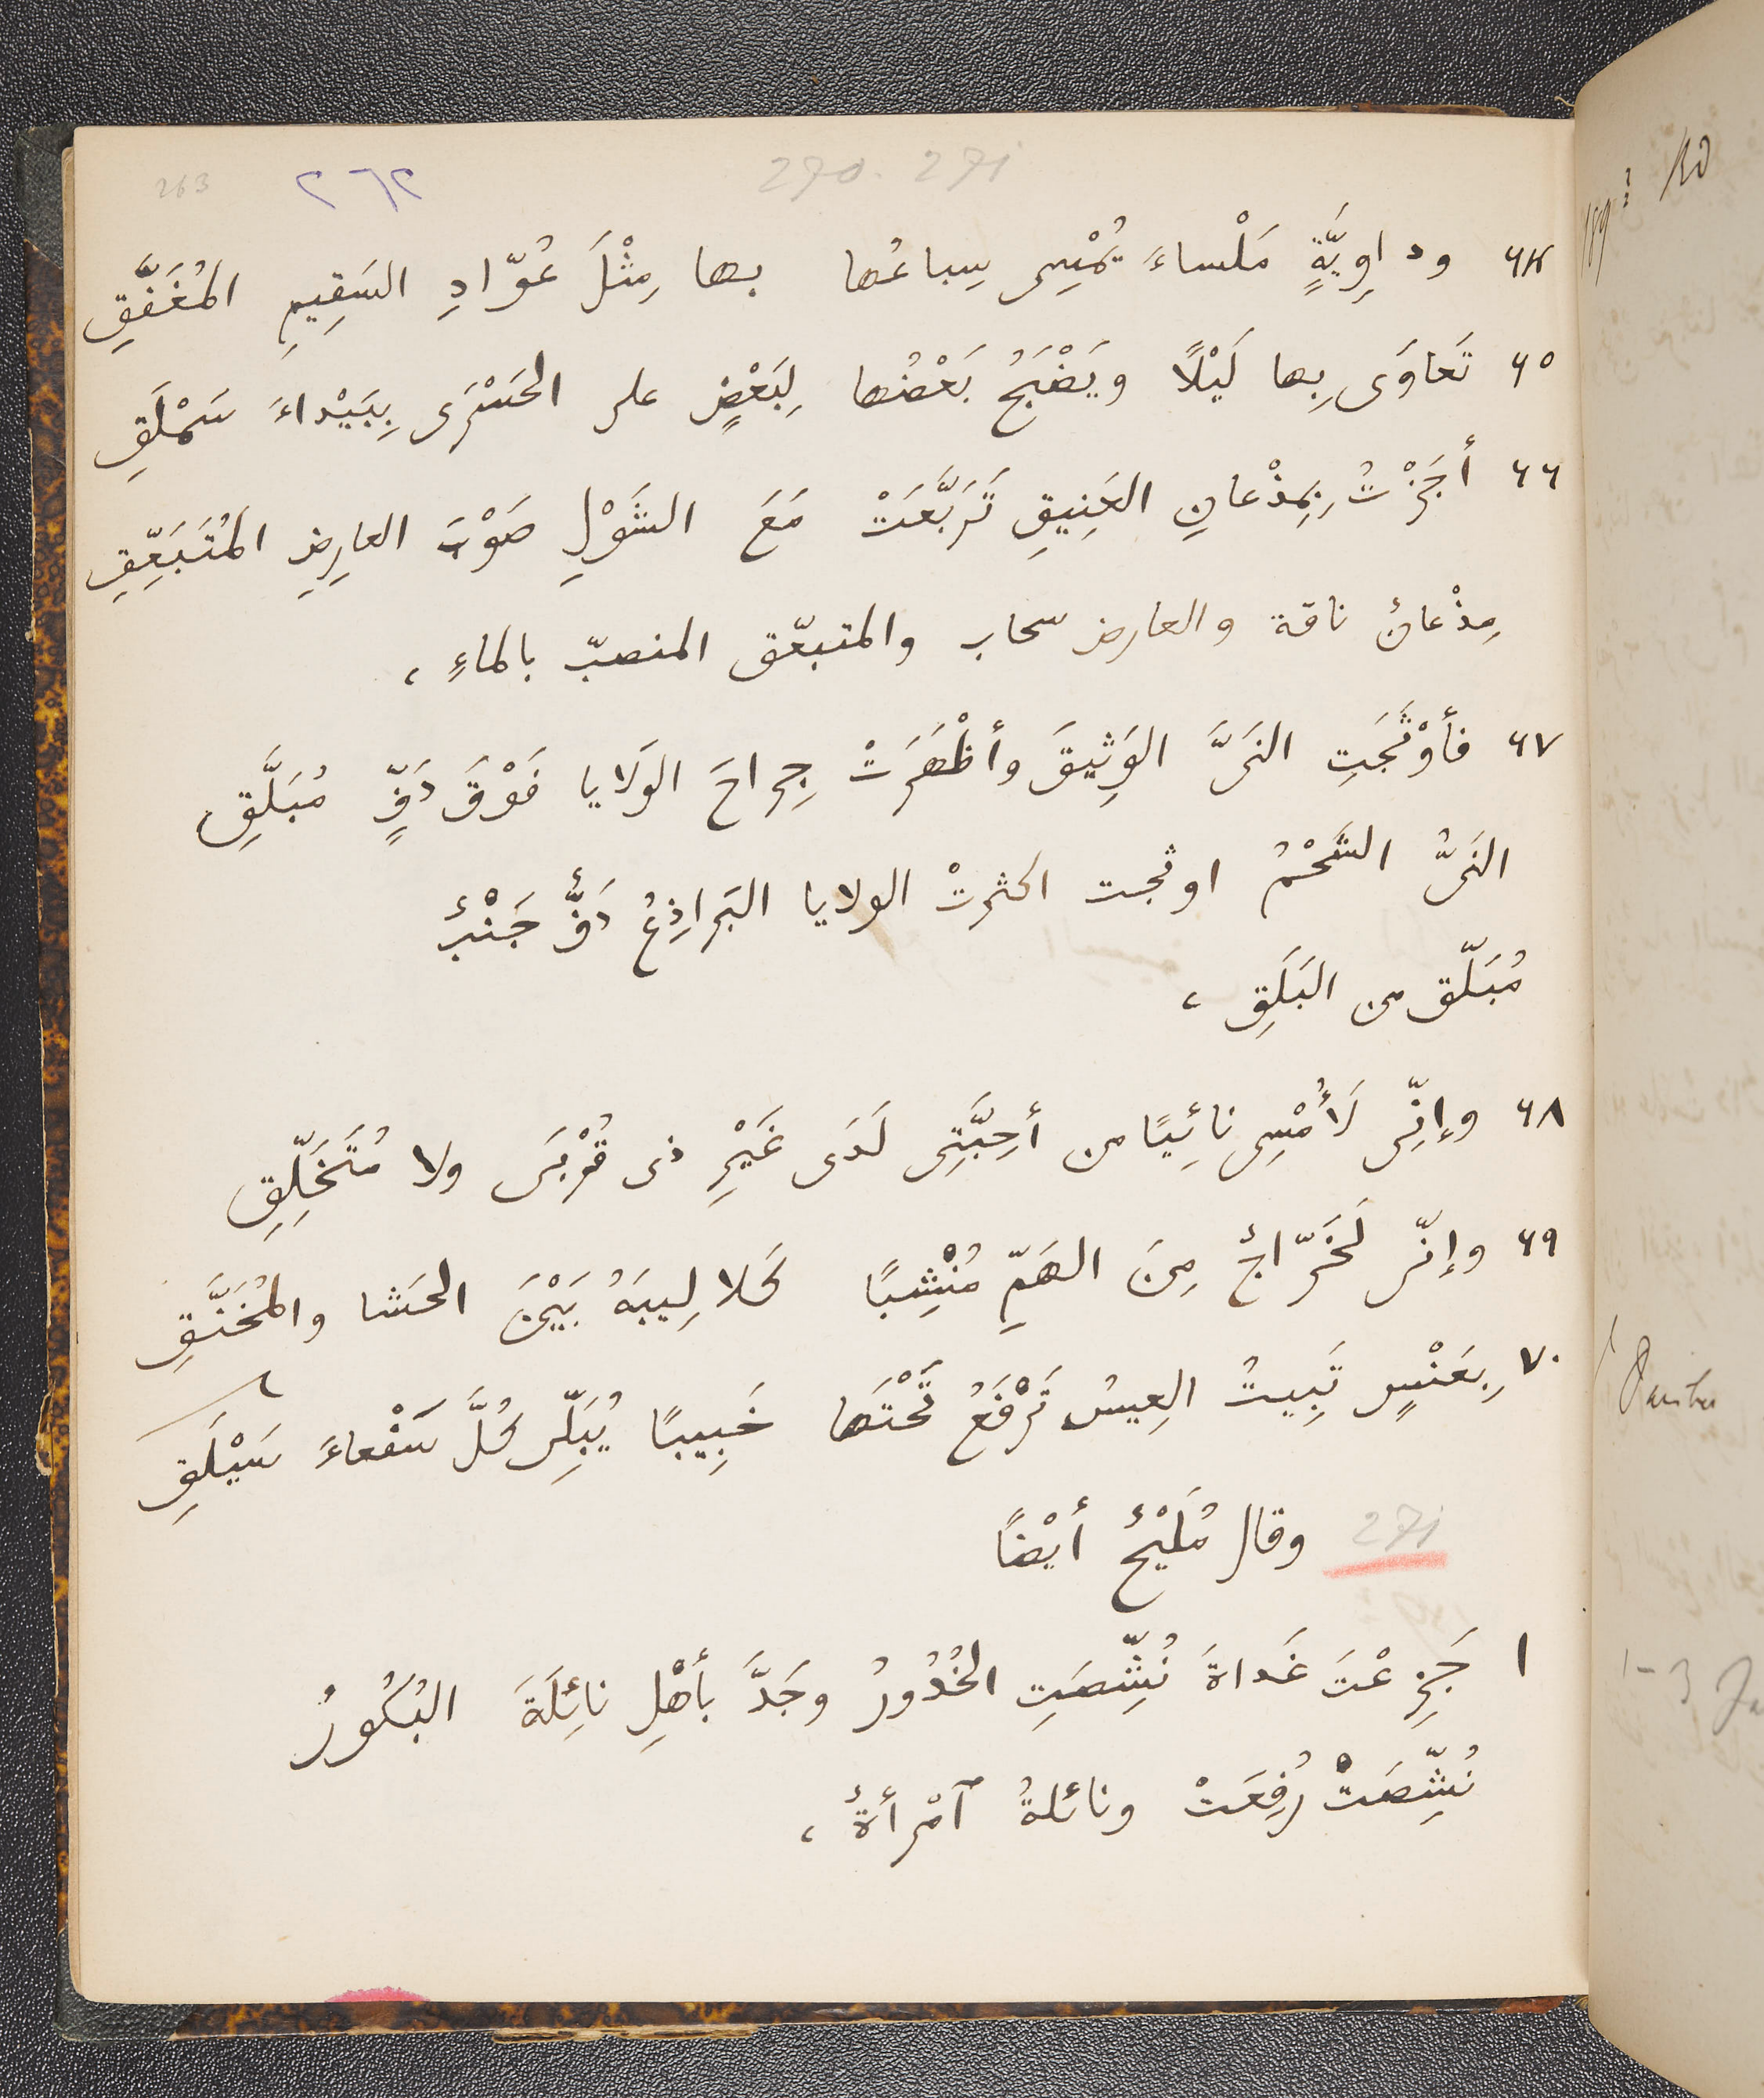 270. 271
٢٦٢
263
٦٤ وداوِيَّةٍ مَلْساءَ يُمْسِى سِباعُها بها مِثْلَ عُوّادِ السَقِيمِ المُغَفَّقِ
٦٥ تَعاوَى بِها لَيْلًا ويَضْبَحُ بَعْضُها لِبَعْضٍ على الحَسْرَى بِبَيْداءَ سَمْلَقِ
٦٦ أجَزْتُ بِمِذْعانِ العَنِيقِ تَرَبَّعَتْ مَعَ الشَوْلِ صَوْبَ العارِضِ المُتَبَعِّقِ
مِذْعانٌ ناقة والعارض سحاب والمتبعّق المنصبّ بالماءِ ،
٦٧ فأوْثَجَتِ النَىَّ الوَثِيقَ وأظْهَرَتْ جِراحَ الوَلايا فَوْقَ دَفٍّ مُبَلَّقِ
النَىُّ الشَحْمُ اوثجت اكثرتْ الولايا البَراذِعُ دَفٌّ جَنْبٌ
مُبَلّق من البَلَقِ ،
٦٨ وإنِّى لَأُمْسِى نائِيًا من أحِبَّتِى لَدَى غَيْرِ ذى قُرْبَى ولا مُتَخَلِّقِ
٦٩ وإنّى لَخَرّاجٌ مِنَ الهَمِّ مُنْشِبًا كَلالِيبَهُ بَيْنَ الحَشا والمُخَنَّقِ
٧٠ بِعَنْسٍ تَبِيتُ العِيسُ تَرْفَعُ تَحْتَها خَبِيبًا يُبَلِّى كُلَّ سَفْعاءَ سَيْلَقِ
271 وقال مُلَيْحٌ أيْضًا
١ جَزِعْتَ غَداةَ نُشِّصَتِ الخُدُورُ وجَدَّ بأهْلِ نائِلَةَ البُكُورُ
نُشِّصَتْ رُفِعَتْ ونائلةُ ٱمْرأةٌ ،